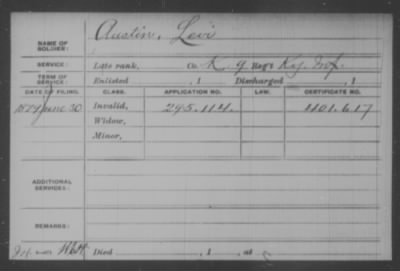 Austin, Levi
NAME OF SOLDIER:
SERVICE: Late rank, Co. K. 9 Reg't Ky. Inf.
TERM OF SERVICE: Enlisted , 1 Discharged , 1
DATE OF FILING. CLASS. APPLICATION NO. LAW. CERTIFICATE NO.
1879 June 30 Invalid, 295.114. 1101.617
Widow,
Minor,
ADDITIONAL SERVICES:
REMARKS:
Died , 1 , at